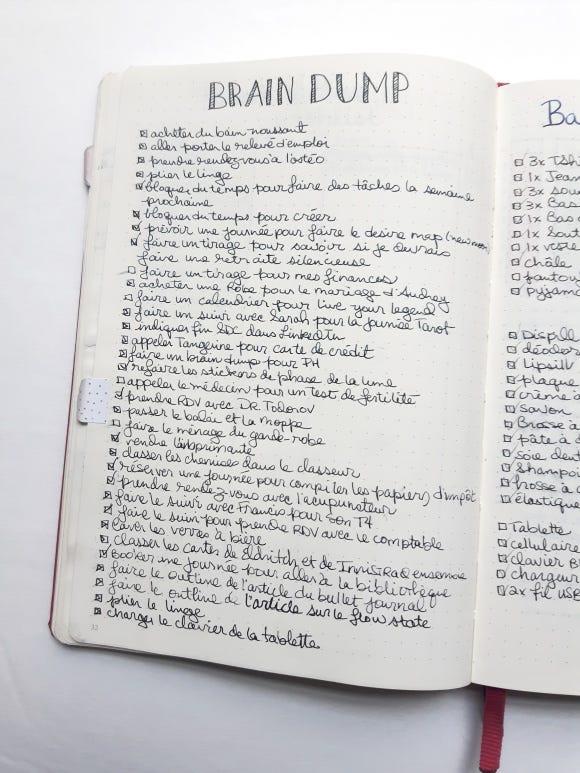 BRAIN DUMP
acheter du bain moussant
aller porter le relevé d'emploi
prendre rendez-vous à l'ostéo
plier le linge
bloquer du temps pour faire des tâches la semaine
prochaine
bloquer du temps pour créer
prévoir une journée pour faire le desire map (new moon)
faire un tirage pour savoir si je devrais
faire une retraite silencieuse
faire un tirage pour mes finances
acheter une robe pour le mariage d'Audrey
faire un calendrier pour live your legend
faire un suivi avec Sarah pour la journée Tarot
indiquer fin SDC dans LinkedIn
appeler Tangerine pour carte de crédit
faire un brain dump pour PH
refaire les stickers de phase de la lune
appeler le médecin pour un test de fertilité
prendre RDV avec DR. Todorov
passer le balai et la moppe
faire le ménage du garde-robe
vendre l'imprimante
classer les chemises dans le classeur
réserver une journée pour compiler les papiers d'impôt
prendre rendez-vous avec l'acupunteur
faire le suivi avec Francis pour son T4
faire le suivi pour prendre RDV avec le comptable
laver les verres à bière
classer les cartes de Eldritch et de ensemble
booker une journée pour aller à la bibliothèque
faire le outline de l'article du bullet journal
faire le outline de l'article sur le flow state
plier le linge
charger le clavier de la tablette
32
Ba
3x
1x Jean
3x
3x Bas
1x Bas
1x
1x
châle
pyjama
déodor
Lipsill
plaque
crème à
savon
Brosse à
pâte à d
soie dent
shampoi
brosse à c
élastique
Tablette
cellulaire
clavier B
chargeur
2x fil USB